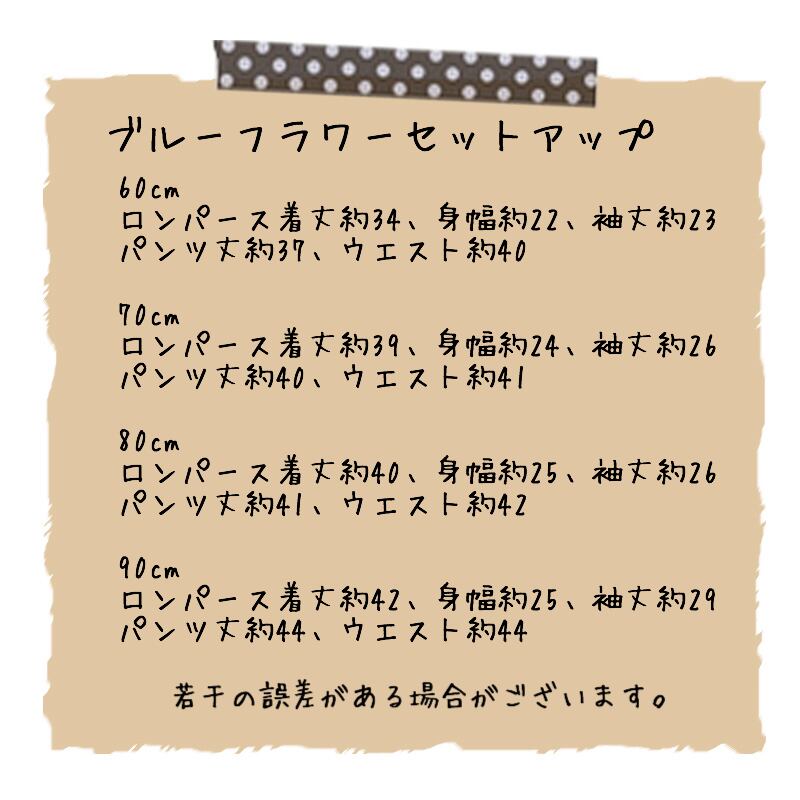 ブルーフラワーセットアップ
60cm
ロンパース着丈約34、身幅約22、袖丈約23
パンツ丈約37、ウエスト約40
70cm
ロンパース着丈約39、身幅約24、袖丈約26
パンツ丈約40、ウエスト約41
80cm
ロンパース着丈約40、身幅約25、袖丈約26
パンツ丈約41、ウエスト約42
90cm
ロンパース着丈約42、身幅約25、袖丈約29
パンツ丈約44、ウエスト約44
若干の誤差がある場合がございます。